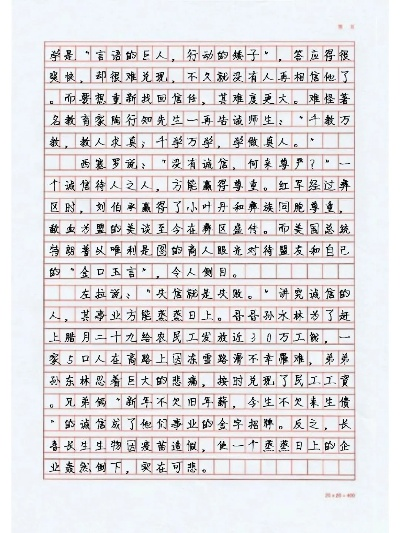 第 页
学是“言语的巨人,行动的矮子”,答应得很
爽快,却很难兑现,不久就没有人再相信他了
。而要想重新找回信任,其难度更大。难怪著
名教育家陶行知先生一再告诫师生:“千教万
教,教人求真;千学万学,学做真人。”
西塞罗说:“没有诚信,何来尊严?”一
个诚信待人之人,方能赢得尊重。红军经过彝
区时,刘伯承赢得了小叶丹和彝族同胞尊重,
歃血为盟的美谈至今在彝区盛传。而美国总统
特朗普以唯利是图的商人眼光对待盟友和自己
的“金口玉言”,令人侧目。
左拉说:“失信就是失败。”讲究诚信的
人,其事业方能蒸蒸日上。哥哥孙水林为了赶
上腊月二十九给农民工发放近30万工钱,一
家5口人在高路上因冻雪路滑不幸罹难,弟弟
孙东林忍着巨大的悲痛,按时兑现了民工工资
。兄弟俩“新年不欠旧年薪,今生不欠来生债
”的诚信成了他们事业的金字招牌。反之,长
春长生生物因疫苗造假,使一个蒸蒸日上的企
业轰然倒下,实在可悲。
20×20=400